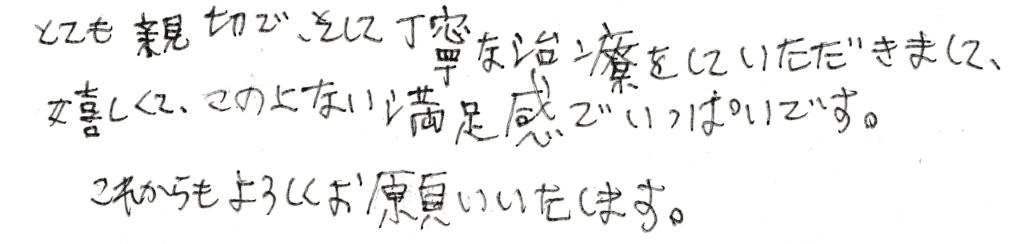 とても親切で、そして丁寧な治療をしていただきまして、
嬉しくて、この上ない満足感でいっぱいです。
これからもよろしくお願いいたします。